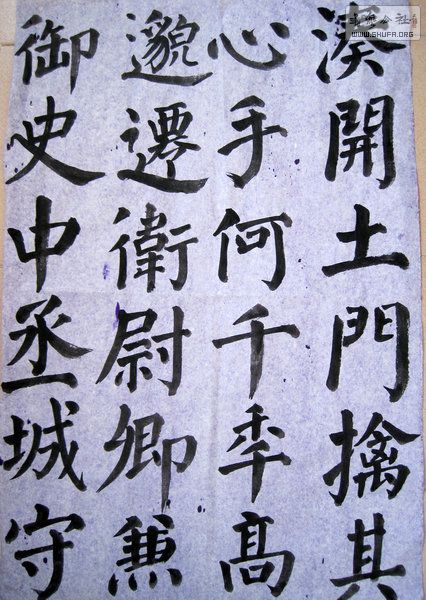 湊開土門擒其
心手何千秊髙
邈遷衛尉卿兼
御史中丞城守
公社
WWW.SHUFA.ORG